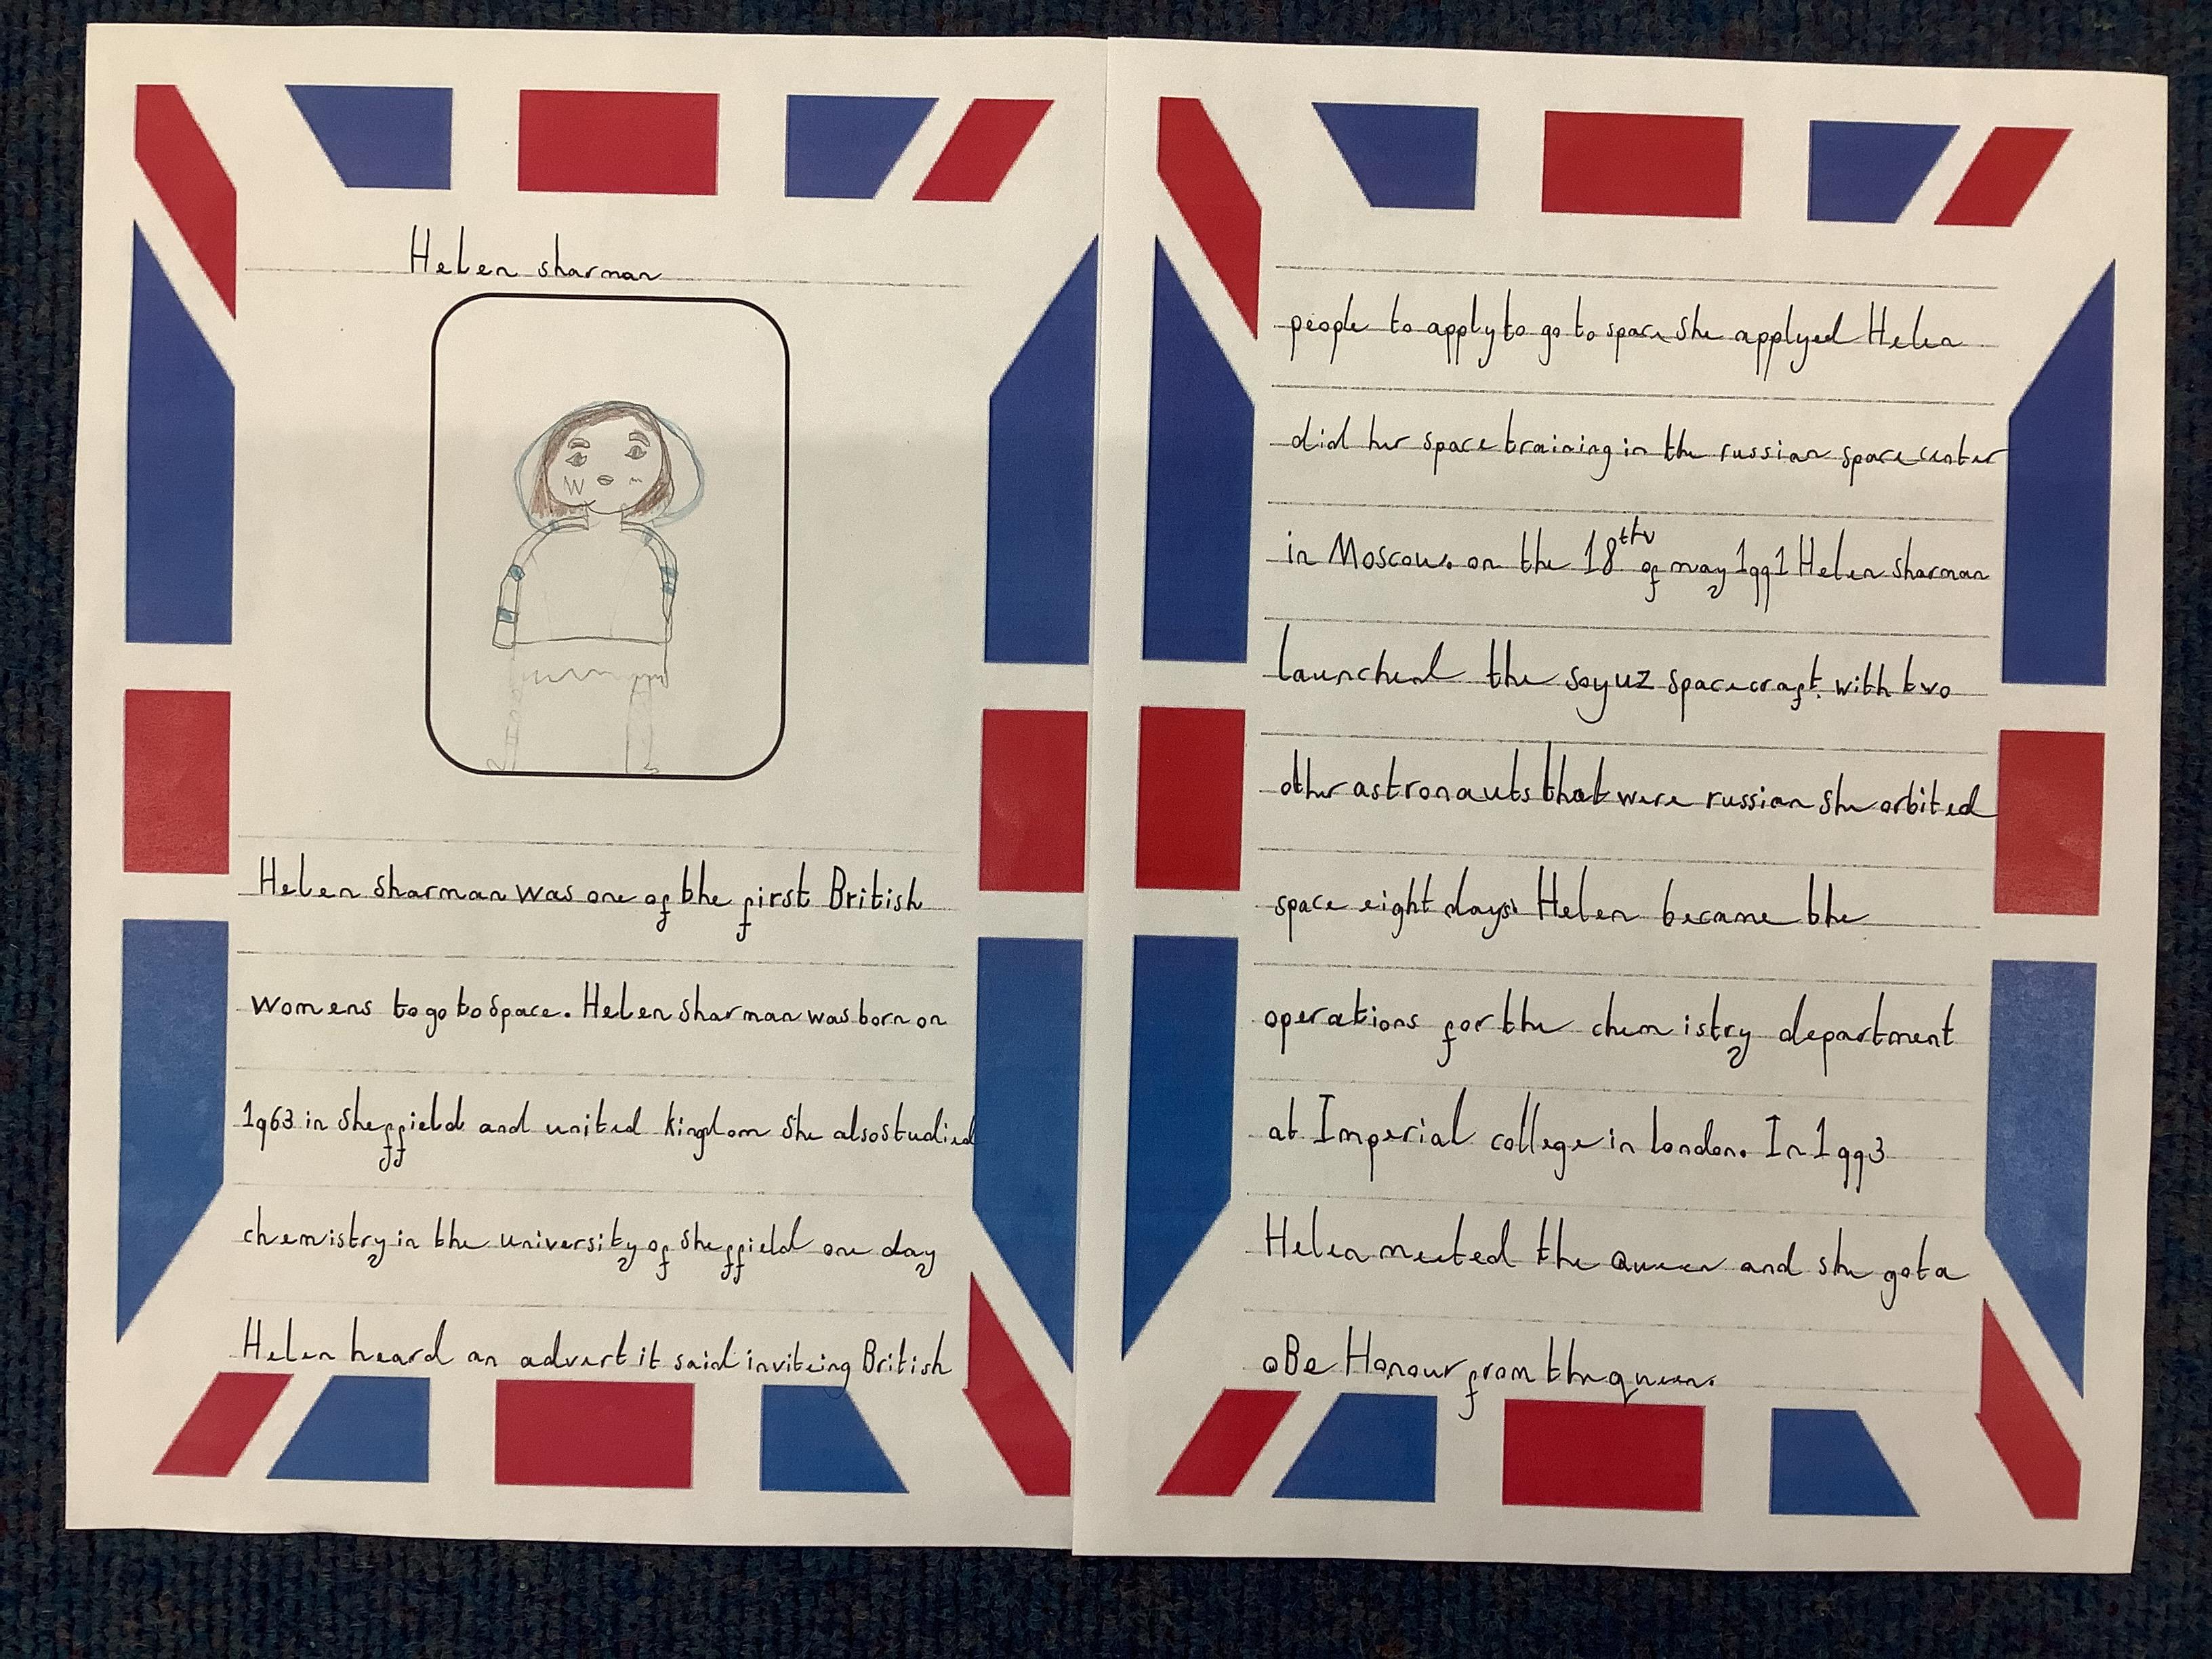 Helen sharman
Helen Sharman was one of the first British
womens to go to Space. Helen Sharman was born on
1963 in Sheffield and united kingdom She also studied
chemistry in the university of Sheffield one day
Helen heard an advert it said inviteing British
people to apply to go to space She applyed Helen
did her space training in the russian space center
in Moscow. on the 18th of may 1991 Helen Sharman
launched the soyuz spacecraft. with two
other astronauts that were russian She orbited
space eight days. Helen became the
operations for the chemistry department
at Imperial college in london. In 1993
Helen meeted the Queen and she got a
oBe Honour from the queen.